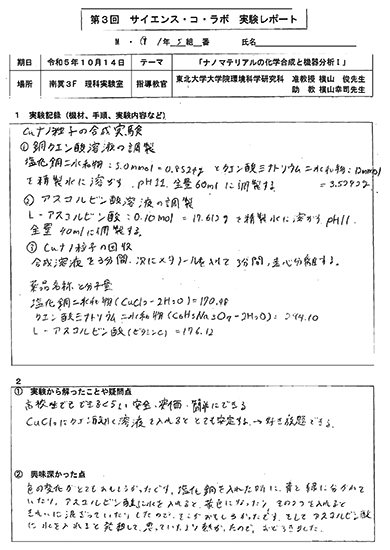 第3回 サイエンス・コ・ラボ 実験レポート
年 組 番 氏名
期日 令和5年10月14日 テーマ 「ナノマテリアルの化学合成と機器分析Ⅰ」
場所 南翼3F 理科実験室 指導教官 東北大学大学院環境科学研究科 准教授 横山 俊先生
助 教 横山幸司先生
1 実験記録(機材、手順、実験内容など)
Cuナノ粒子の合成実験
①銅クエン酸溶液の調製
塩化銅二水和物:5.0mmol=0.8524gとクエン酸三ナトリウム二水和物:12mmol
=3.5292g
を精製水に溶かす、pH11、全量60mlに調製する。
②アスコルビン酸溶液の調製
L-アスコルビン酸:0.10mol=17.612gを精製水に溶かす pH11
全量40mlに調製する。
③Cuナノ粒子の回収
合成溶液を3分間、次にメタノールを入れて3分間、遠心分離する。
薬品名称と分子量
塩化銅二水和物(CuCl₂-2H₂O)=170.48
クエン酸三ナトリウム二水和物(C₆H₅Na₃O₇-2H₂O)=294.10
L-アスコルビン酸(ビタミンC)=176.12
2
① 実験から解ったことや疑問点
高校生でもできるくらい安全、安価、簡単にできる
CuCl₂にクエン酸溶液を入れるととても安定する→好き放題できる。
② 興味深かった点
色の変化がとてもおもしろかったです。塩化銅を入れた時に、青と緑に分かれて
いたり、アスコルビン酸に水を入れると、黄色になったり、その2つを入れると
きれいに混ざっていたりしたので、そこがおもしろかったです。そしてアスコルビン酸
に水を入れると発熱して、思っていたより熱かったので、おどろきました。